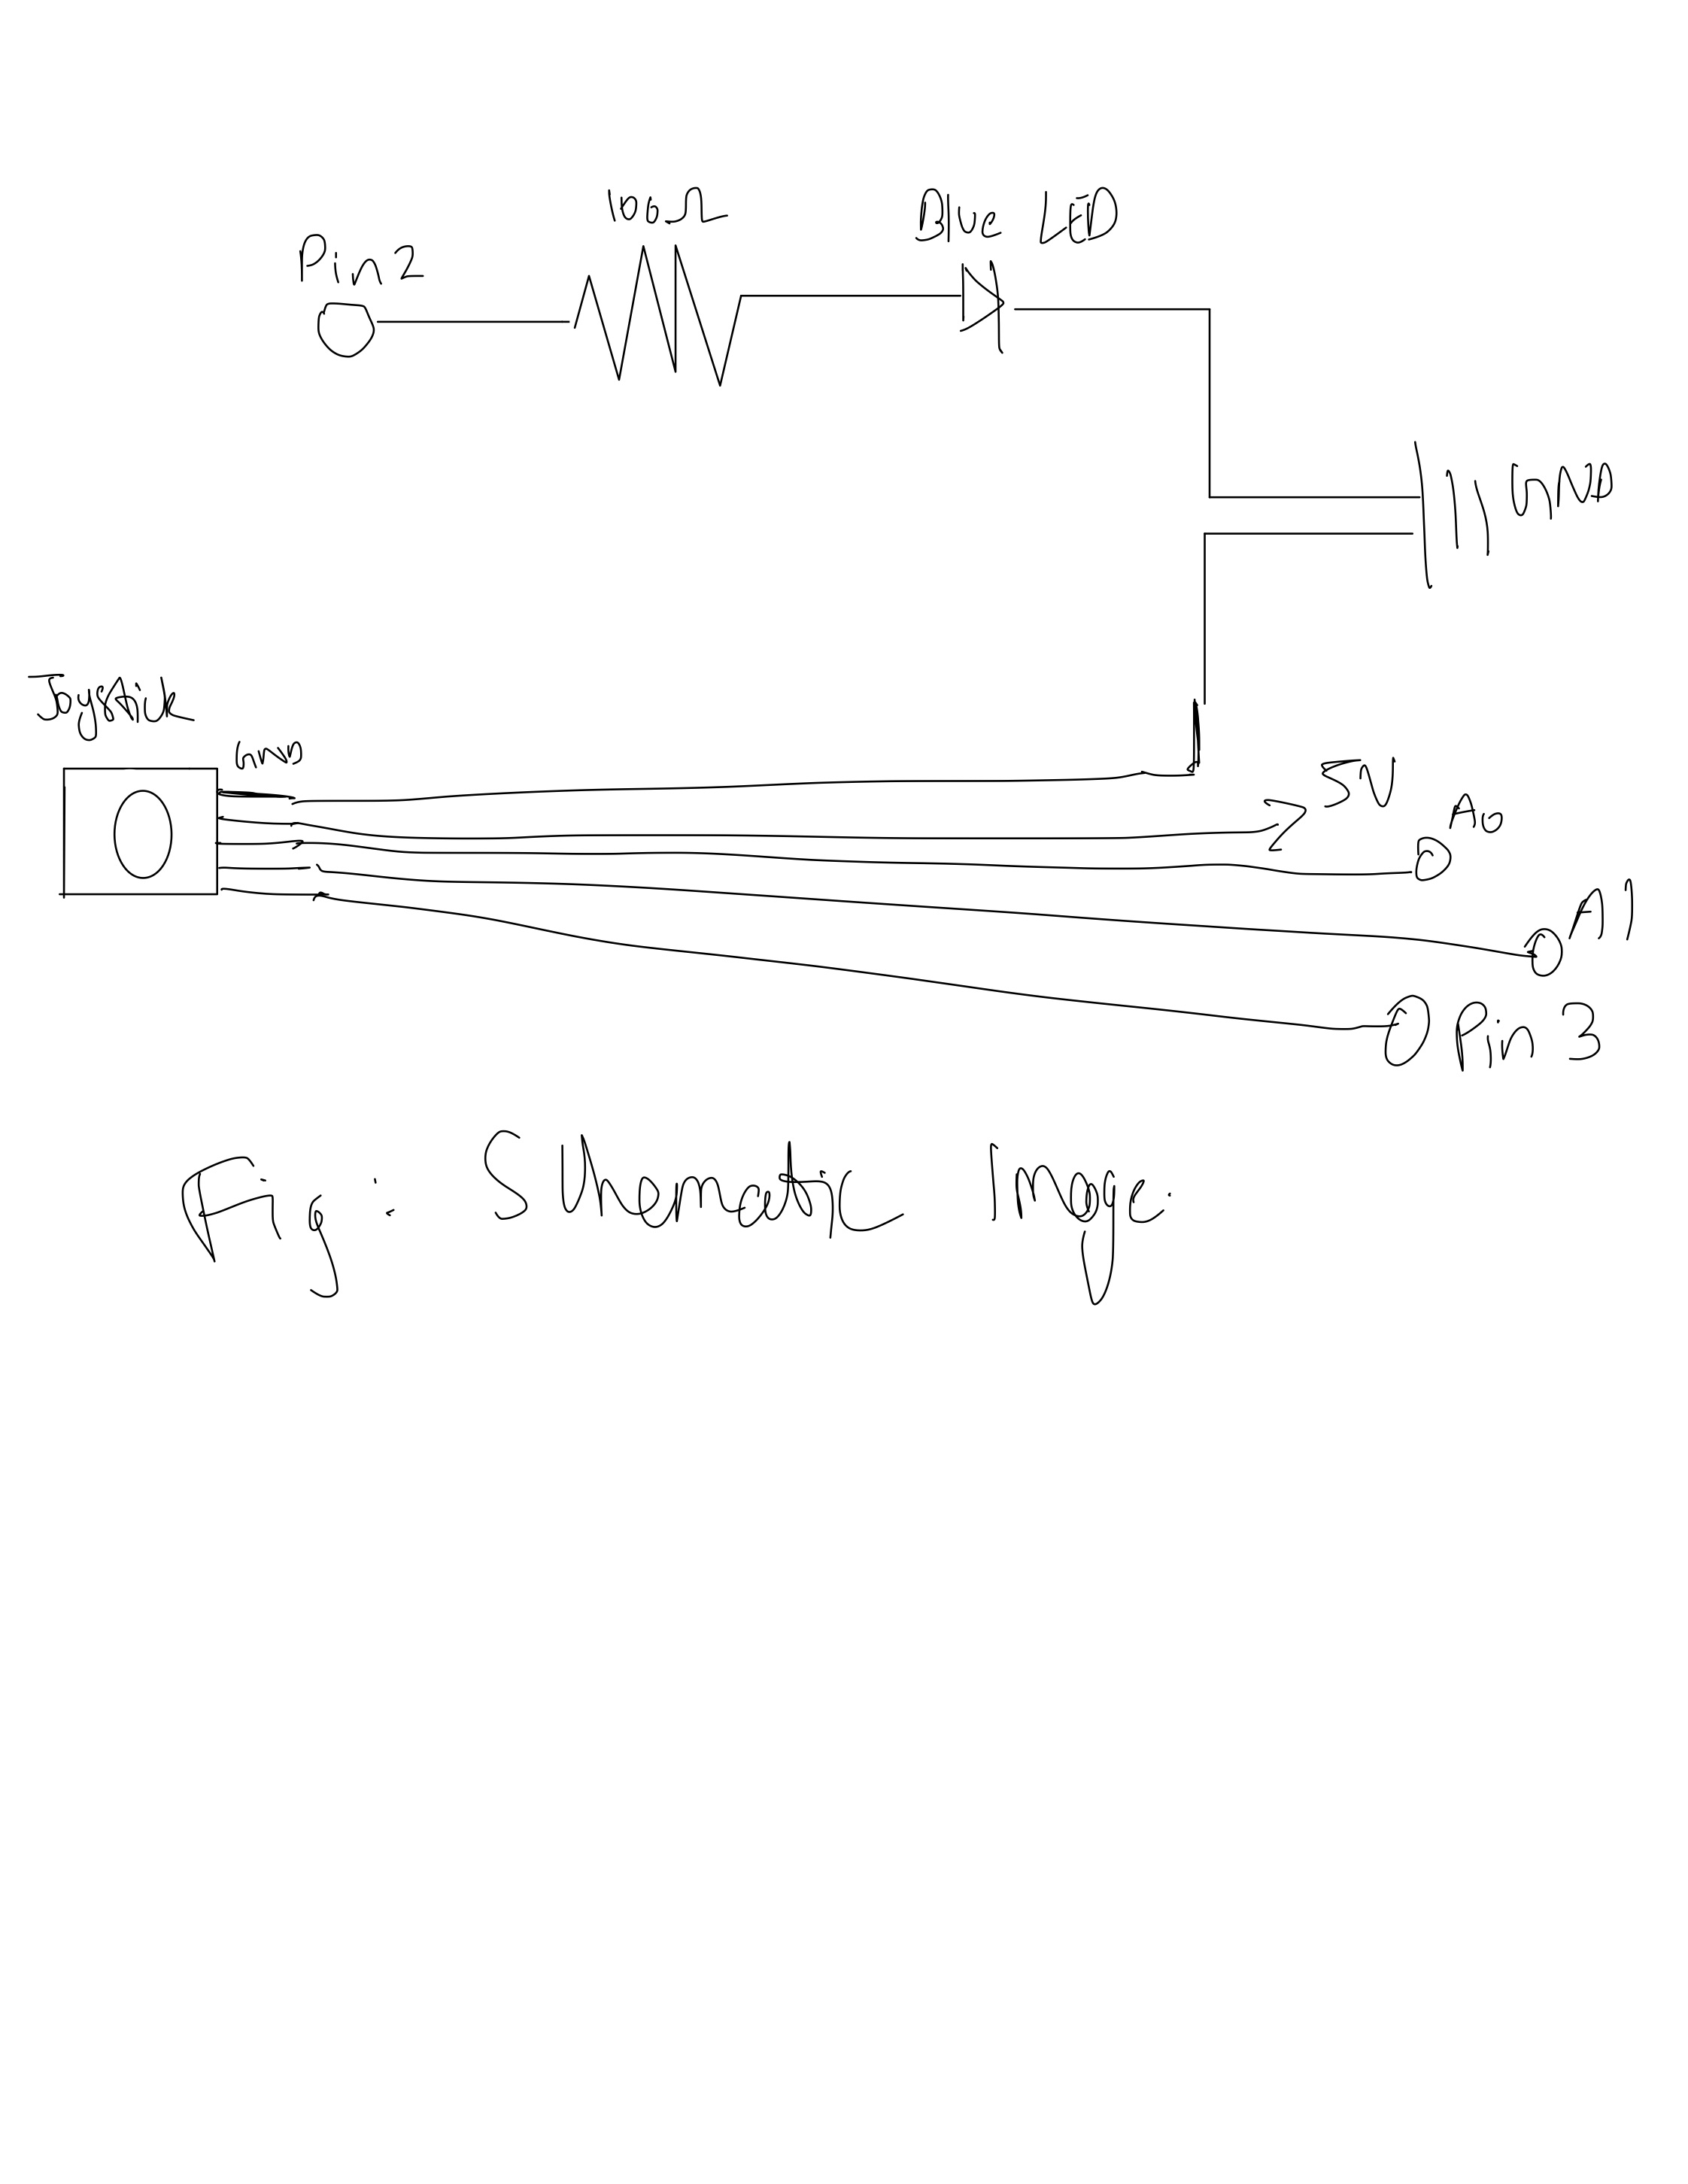 Pin 2
100 Ω
Blue LED
GND
Joystick
GND
5V
A0
A1
Pin 3
Fig : Schematic Image.